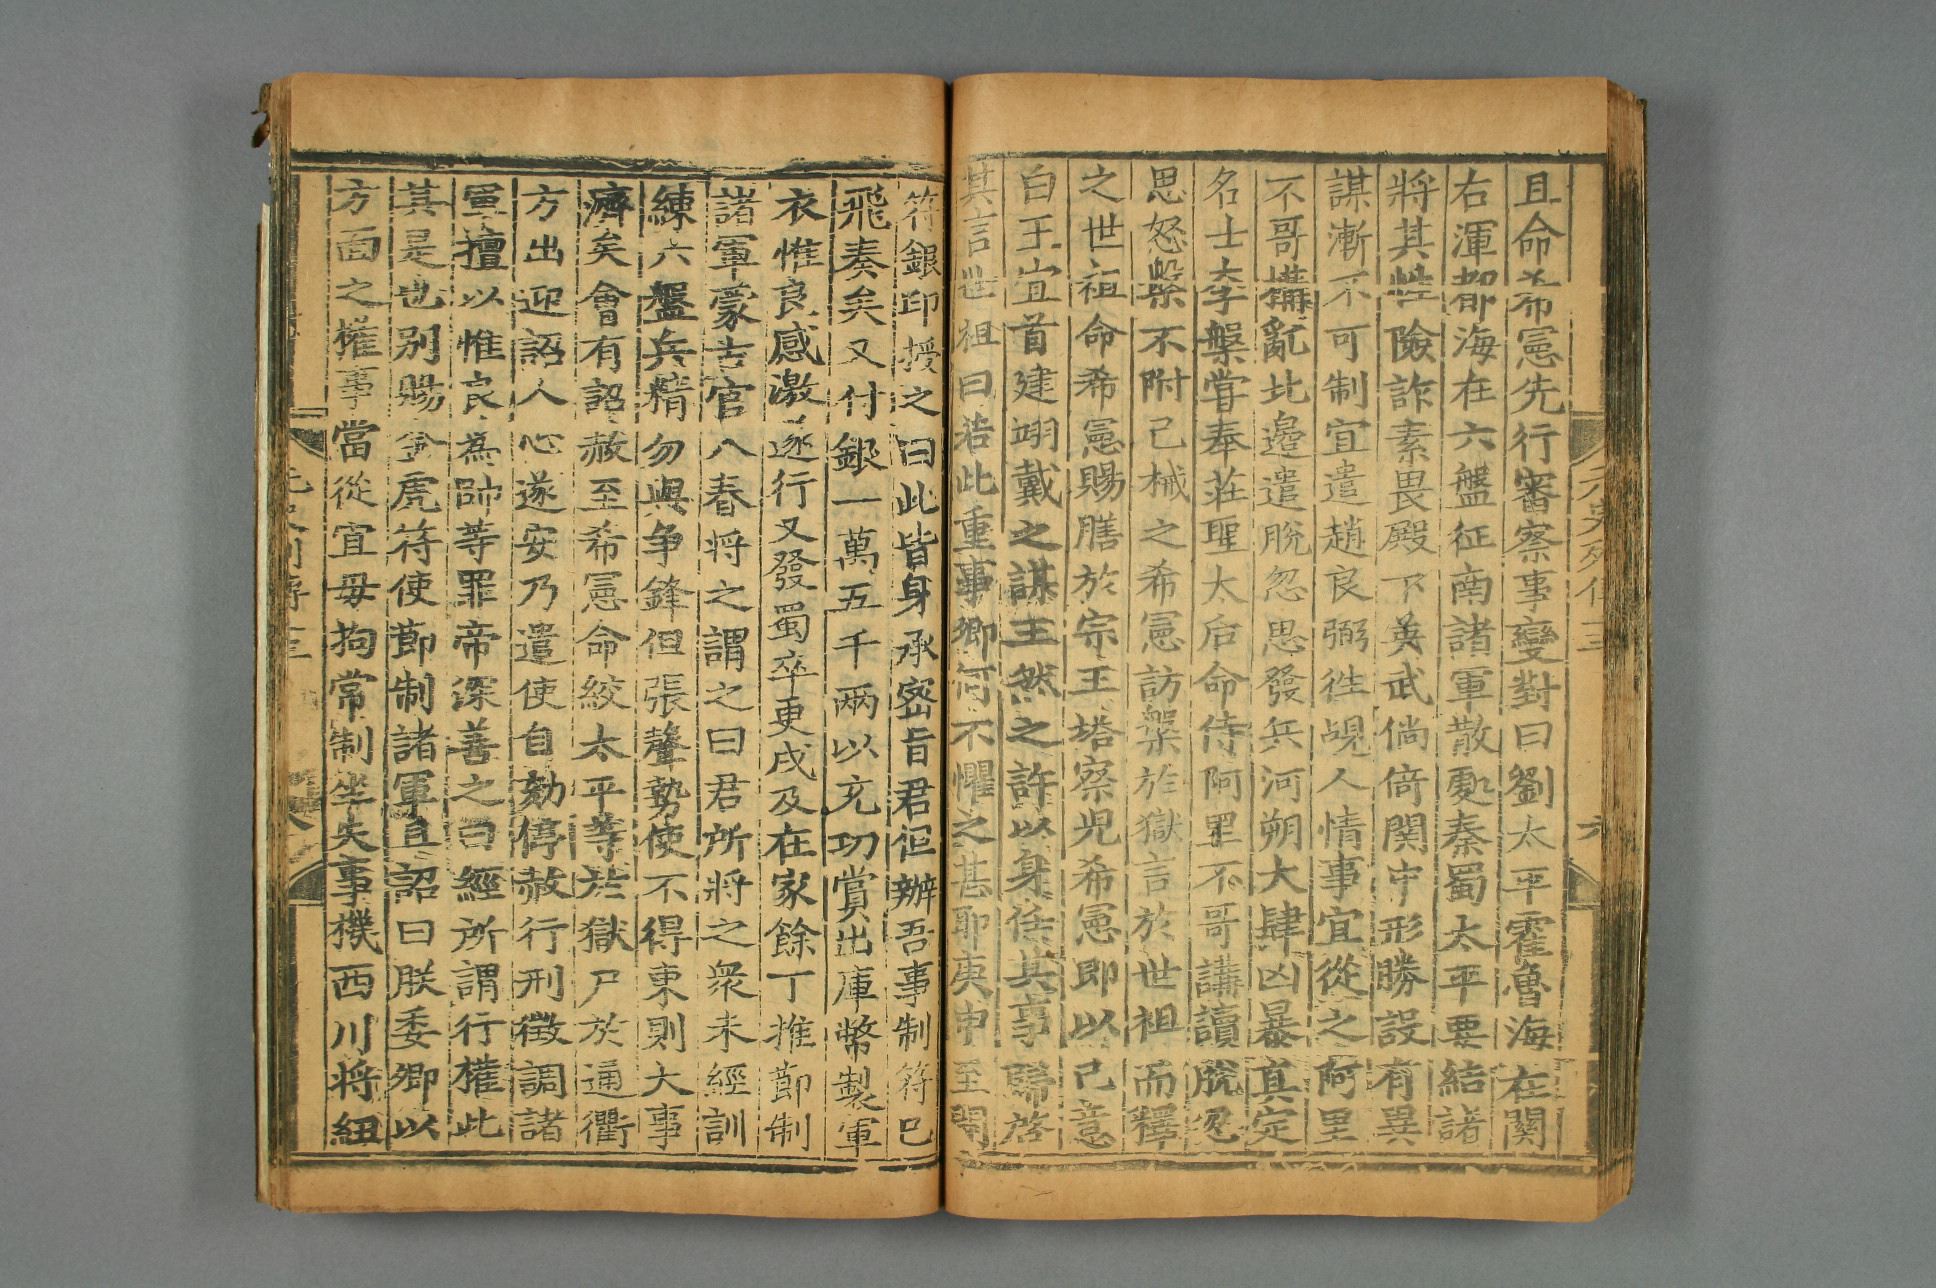 且命希憲先行審察事變對曰劉太平霍魯海在關
右渾都海在六盤征南諸軍散處秦蜀太平要結諸
將其性險詐素畏殿下英武倘倚関中形勝設有異
謀漸不可制宜遣趙良弼徃覘人情事宜從之阿里
不哥搆亂北邉遣脫忽思發兵河朔大肆凶暴真定
名士李槃甞奉莊聖太后命侍阿里不哥講讀脫忽
思怒槃不附己械之希憲訪槃於獄言於世祖而釋
之世祖命希憲賜膳於宗王塔察兒希憲即以己意
白王宜首建翊戴之謀王然之許以身任其事歸啓
其言世祖曰若此重事卿何不懼之甚耶庚申至開
元史列傳十三
六
符銀印授之曰此皆身承密旨君但辦吾事制符已
飛奏矣又付銀一萬五千兩以充功賞出庫幣製軍
衣惟良感激遂行又發蜀卒更戍及在家餘丁推節制
諸軍蒙古官八春将之謂之曰君所將之衆未經訓
練六盤兵精勿與争鋒但張聲勢使不得東則大事
濟矣會有詔赦至希憲命絞太平等於獄尸於通衢
方出迎詔人心遂安乃遣使自劾停赦行刑徵調諸
軍擅以惟良為帥等罪帝深善之曰經所謂行權此
其是也别賜金虎符使節制諸軍且詔曰朕委卿以
方面之權事當從宜毋拘常制坐失事機西川将紐
元史列傳十三